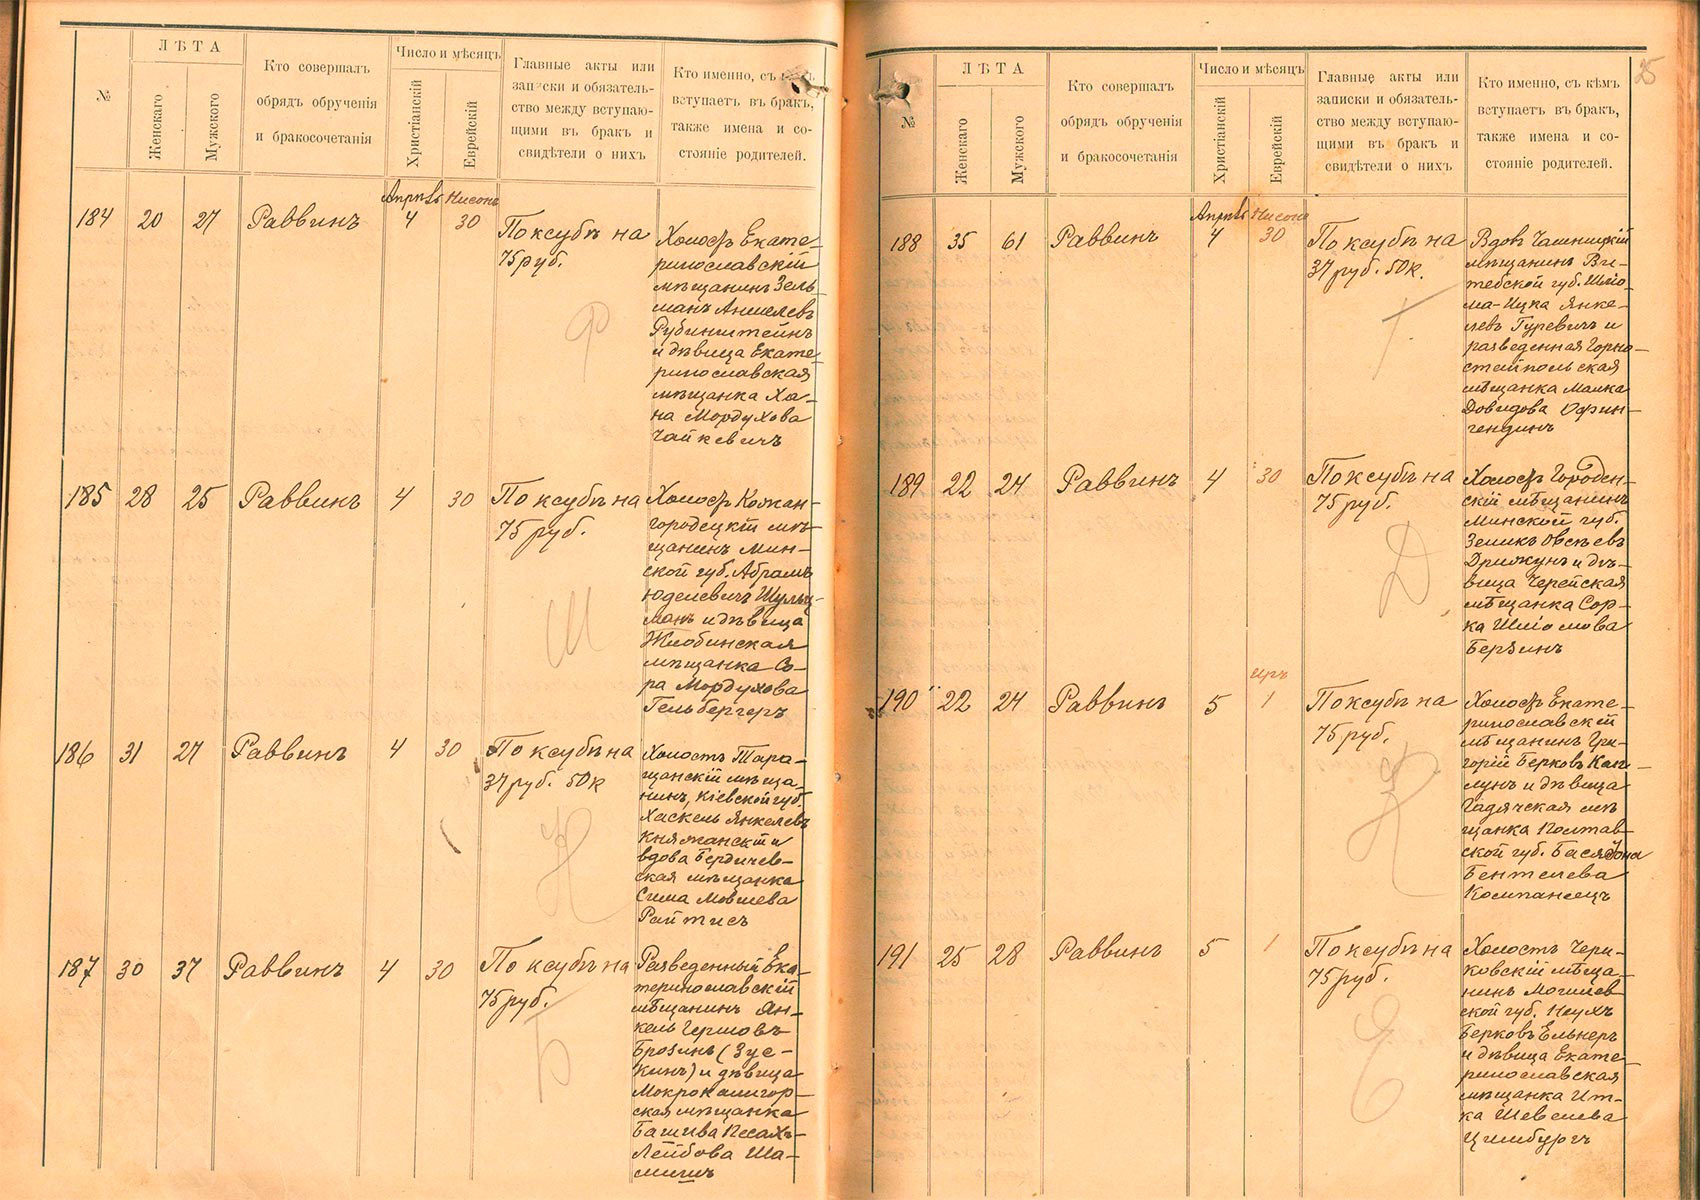 №
ЛѢТА
Женскаго
Мужского
Кто совершалъ
обрядъ обрученія
и бракосочетанія
Число и мѣсяцъ
Христіанскій
Еврейскій
Главные акты или
записки и обязатель-
ство между вступаю-
щими въ бракъ и
свидѣтели о нихъ
Кто именно, съ кѣмъ
вступаетъ въ бракъ,
также имена и со-
стояніе родителей.
Апрѣль Нисонъ
184 20 27 Раввинъ 4 30
По ксубѣ на
75 руб.
Холостъ Екате-
ринославскій
мѣщанинъ Зель-
манъ Аншелевъ
Рубинштейнъ
и дѣвица Екате-
ринославская
мѣщанка Ха-
на Мордухова
Чайкевичъ
Ф
185 28 25 Раввинъ 4 30
По ксубѣ на
75 руб.
Холостъ Кожан-
городецкій мѣ-
щанинъ Мин-
ской губ. Абрамъ
Юделевичъ Шульц-
манъ и дѣвица
Жлобинская
мѣщанка Со-
ра Мордухова
Гельбергеръ
Ш
186 31 27 Раввинъ 4 30
По ксубѣ на
37 руб. 50 к
Холостъ Тара-
щанскій мѣща-
нинъ, Кіевской губ.
Хаскель Янкелевъ
Княжанскій и
вдова Бердичев-
ская мѣщанка
Сима Мовшева
Райтисъ
К
187 30 37 Раввинъ 4 30
По ксубѣ на
75 руб.
Разведенный Ека-
теринославскій
мѣщанинъ Ян-
кель Гершовъ
Брозинъ (Зус-
кинъ) и дѣвица
Мокрокалигор-
ская мѣщанка
Башива Песахъ-
Лейбова Ша-
мишъ
Б
25
№
ЛѢТА
Женскаго
Мужского
Кто совершалъ
обрядъ обрученія
и бракосочетанія
Число и мѣсяцъ
Христіанскій
Еврейскій
Главные акты или
записки и обязатель-
ство между вступаю-
щими въ бракъ и
свидѣтели о нихъ
Кто именно, съ кѣмъ
вступаетъ въ бракъ,
также имена и со-
стояніе родителей.
Апрѣль Нисонъ
188 35 61 Раввинъ 4 30
По ксубѣ на
37 руб. 50 к.
Вдовъ Чашницкій
мѣщанинъ Ви-
тебской губ. Шліо-
ма-Ицка Янке-
левъ Гуревичъ и
разведенная Горно-
стайпольская
мѣщанка Малка
Довидова
Г
189 22 24 Раввинъ 4 30
По ксубѣ на
75 руб.
Холостъ Городен-
скій мѣщанинъ
Минской губ.
Зеликъ Овсѣевъ
Дрижунъ и дѣ-
вица Черейская
мѣщанка Сор-
ка Шліомова
Берзинъ
Д
Иръ
190 22 24 Раввинъ 5 1
По ксубѣ на
75 руб.
Холостъ Екате-
ринославскій
мѣщанинъ Гри-
горій Берковъ Кап-
лунъ и дѣвица
Гадячская мѣ-
щанка Полтав-
ской губ. Бася Зона
Бентелева
Компанеецъ
К
191 25 28 Раввинъ 5 1
По ксубѣ на
75 руб.
Холостъ Чери-
ковскій мѣща-
нинъ Могилев-
ской губ. Неухъ
Берковъ Ельнеръ
и дѣвица Екате-
ринославская
мѣщанка Ит-
ка Шевелева
Цимбургъ
Е